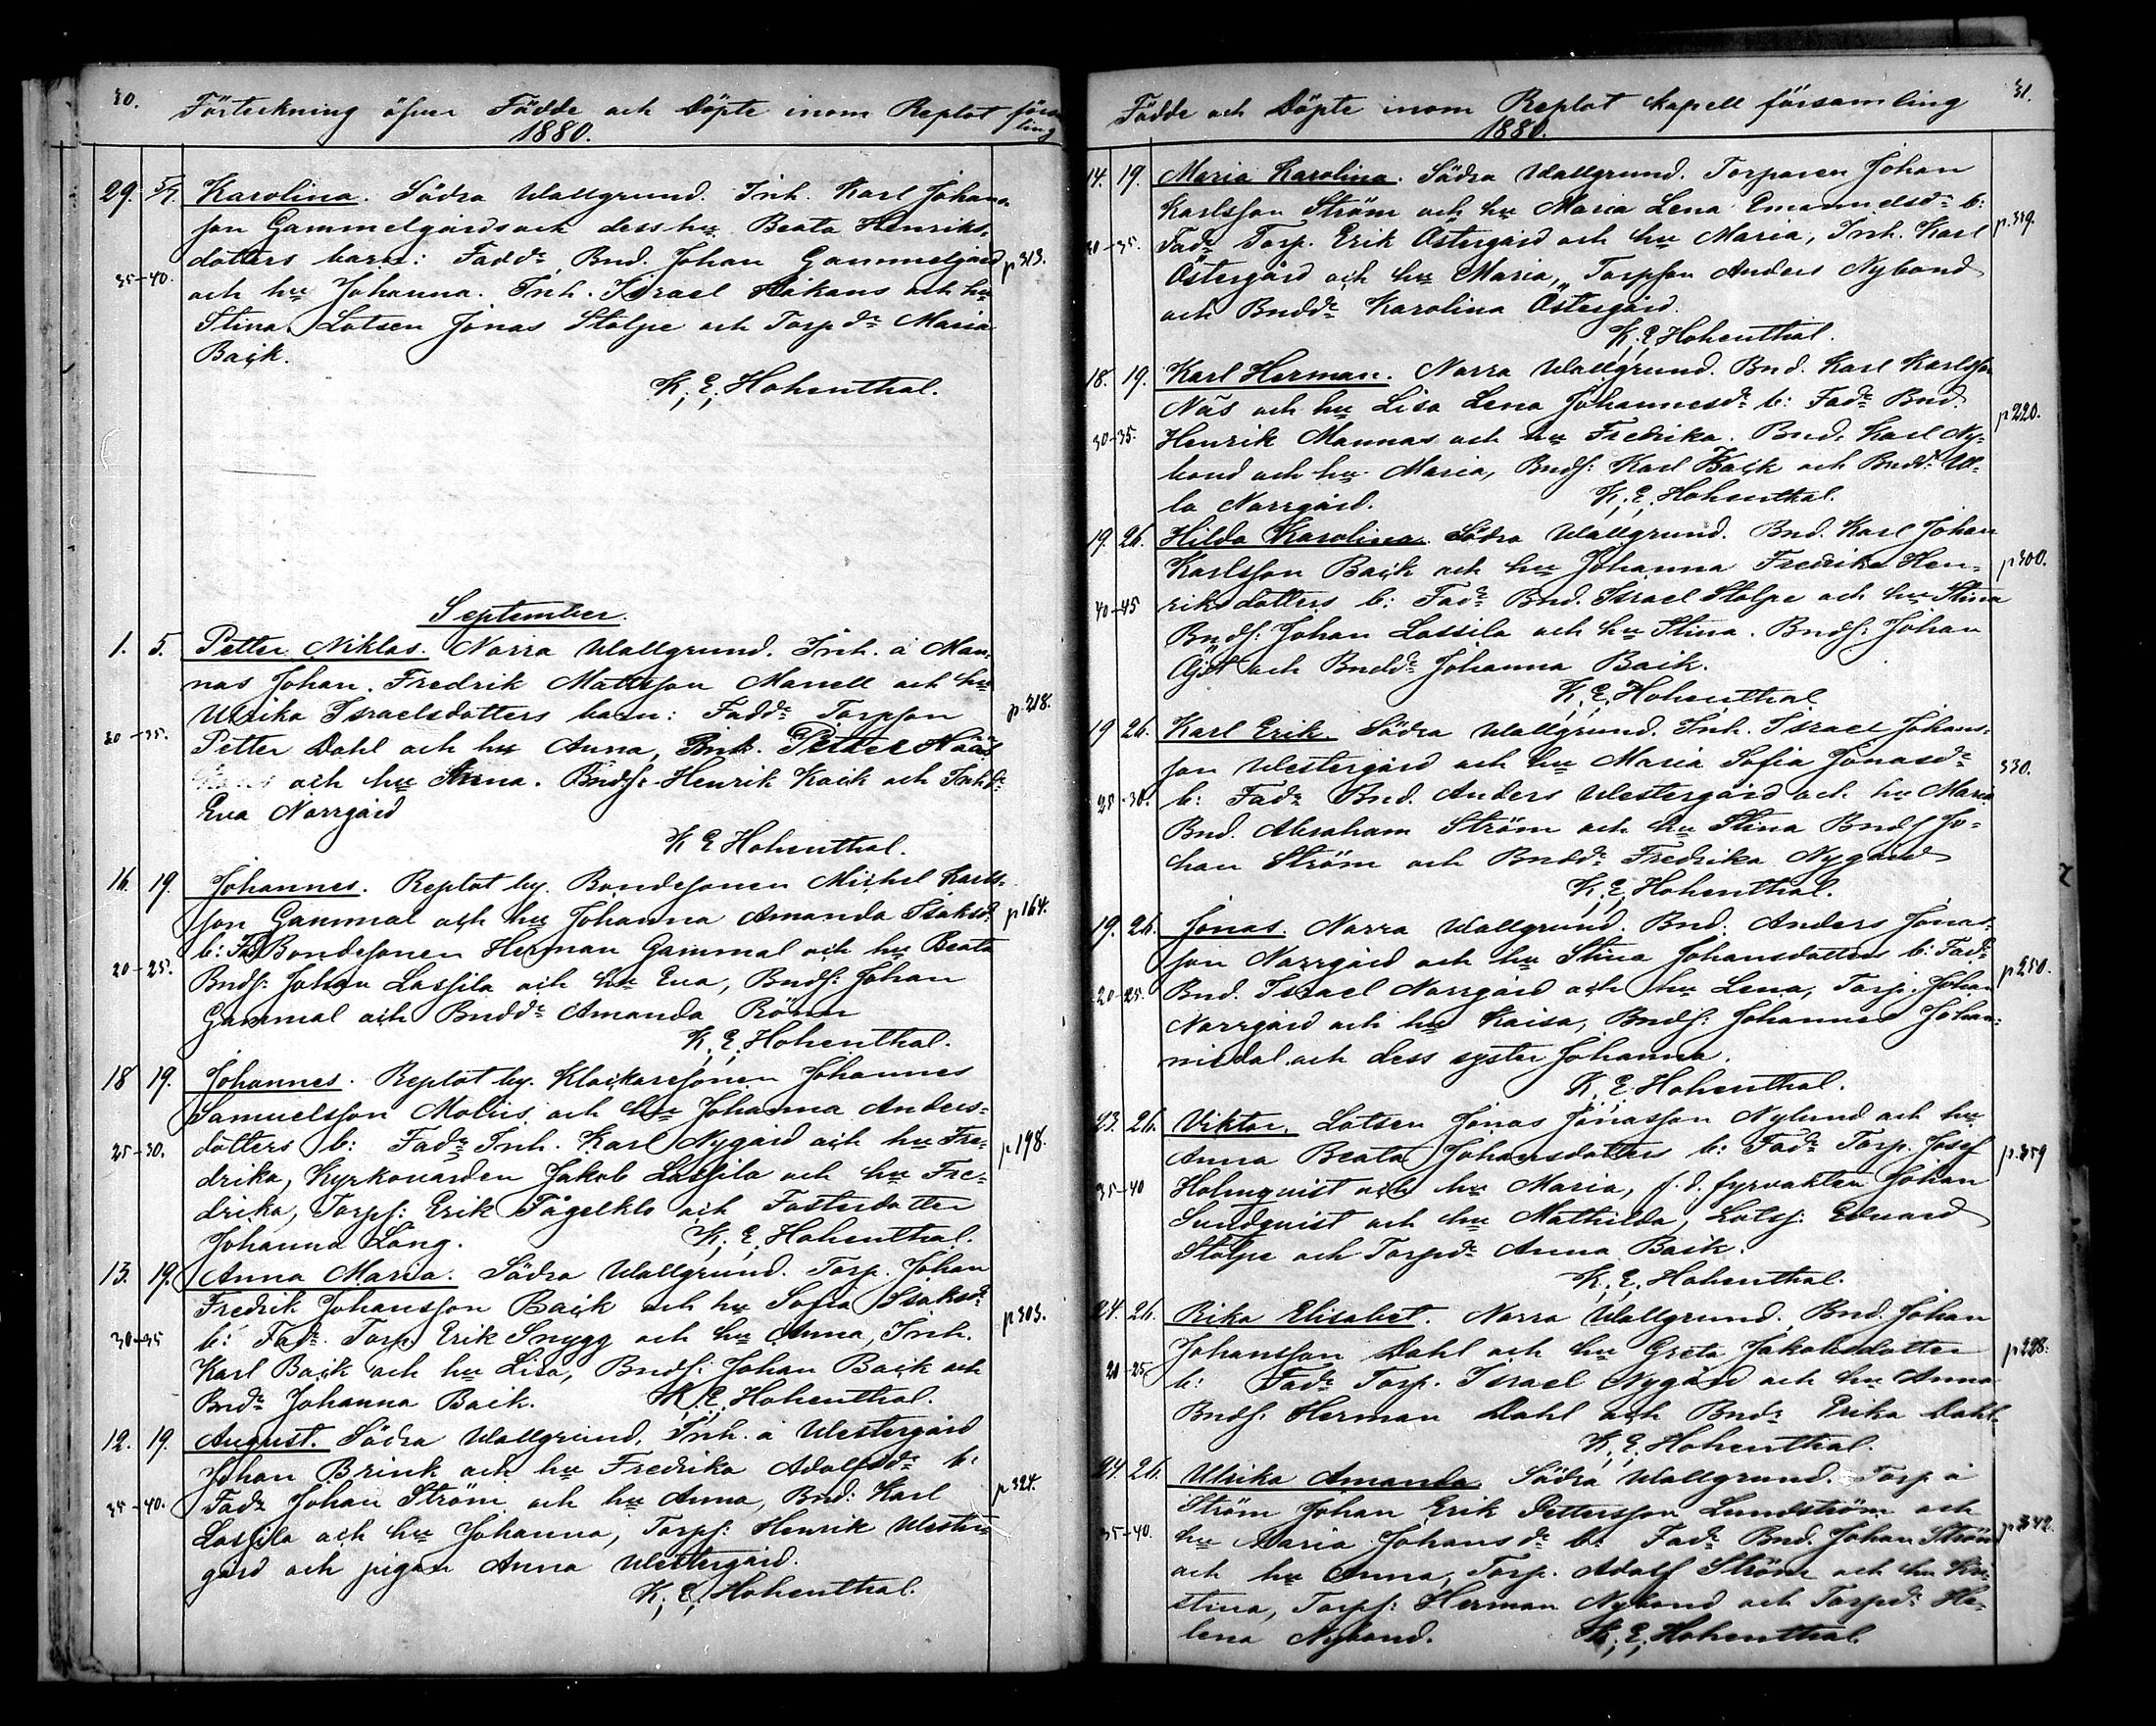 30.
Förteckning öfver Födde och Döpte inom Replot försam
ling
1880.
29. 5/9. Karolina. Södra Wallgrund. Inh. Karl Johans-
son Gammelgårds och dess hu Beata Henriks-
dotters barn: Faddr Bnd. Johan Gammelgård p 313.
35-40. och hu Johanna. Inh. Israel Håkans och hu
Stina. Lotsen Jonas Stolpe och Torpdr Maria
Back.
K. E. Hohenthal.
September.
1. 5. Petter Niklas. Norra Wallgrund. Inh. å Man-
nas Johan Fredrik Mattsson Manell och hu
Ulrika Israelsdotters barn: Faddr Torpson p. 218.
30-35. Petter Dahl och hu Anna, Inh. Petter Näås
och hu Anna. Bnds. Henrik Kack och Inhdr
Eva Norrgård
K E Hohenthal.
16. 19. Johannes. Replot by. Bondesonen Michel Karls-
son Gammal och hu Johanna Amanda Isaksdr p 164.
b: Fad Bondesonen Herman Gammal och hu Beata
20-25. Bnds. Johan Lassila och hu Eva, Bnds: Johan
Gammal och Bnddr Amanda Rönn
K. E. Hohenthal.
18 19. Johannes. Replot by. Klockaresonen Johannes
Samuelsson Molis och hu Johanna Anders-
25-30. dotters b: Fadr Inh. Karl Nygård och hu Fre- p 198.
drika, Kyrkovärden Jakob Lassila och hu Fre-
drika, Torps: Erik Fågelklo och Fosterdotter
Johanna Lång. K. E. Hohenthal.
13. 19. Anna Maria. Södra Wallgrund. Torp. Johan
Fredrik Johansson Back och hu Sofia Isaksdr
30-35 b: Fadr Torp. Erik Snygg och hu Anna, Inh. p 303.
Karl Back och hu Lisa, Bnds: Johan Back och
Bndr Johanna Back. K. E. Hohenthal.
12. 19. August. Södra Wallgrund. Inh. å Westergård
Johan Brink och hu Fredrika Adolfsdr b:
35-40. Fadr Johan Ström och hu Anna, Bnd: Karl p 324.
Lassila och hu Johanna, Torps: Henrik Wester-
gård och pigan Anna Westergård.
K. E. Hohenthal.
31.
Födde och Döpte inom Replot kapell församling
1880.
14. 19. Maria Karolina. Södra Wallgrund. Torparen Johan
Karlsson Ström och hu Maria Lena Emanuelsdr b:
30-35. Fadr Torp. Erik Östergård och hu Maria, Inh. Karl p. 339.
Östergård och hu Maria, Torpson Anders Nybond
och Bnddr Karolina Östergård.
K. E. Hohenthal.
18. 19. Karl Herman. Norra Wallgrund. Bnd. Karl Karlsson
Näs och hu Lisa Lena Johannesdr b: Fadr Bnd. p 220.
30-35. Henrik Mannas och hu Fredrika. Bnd. Karl Ny-
bond och hu Maria, Bnds: Karl Back och Bnddr Ul-
la Norrgård. K. E. Hohenthal.
19. 26. Hilda Karolina. Södra Wallgrund. Bnd. Karl Johan
Karlsson Back och hu Johanna Fredrika Hen- p 300.
40-45 riksdotters b: Fadr Bnd. Israel Stolpe och hu Stina
Bnds: Johan Lassila och hu Stina. Bnds: Johan
Öjst och Bnddr Johanna Back.
K. E. Hohenthal
19 26. Karl Erik. Södra Wallgrund. Inh. Israel Johans-
son Westergård och hu Maria Sofia Jonasdr 330.
25-30. b: Fadr Bnd. Anders Westergård och hu Maria
Bnd. Abraham Ström och hu Stina Bnds Jo-
han Ström och Bnddr Fredrika Nygård
K. E. Hohenthal.
19. 26. Jonas. Norra Wallgrund. Bnd. Anders Jonas-
son Norrgård och hu Stina Johansdotters b: Fadr p 250.
20-25. Bnd. Israel Norrgård och hu Lena, Torp. Johan
Norrgård och hu Kaisa, Bnds: Johannes Johan-
nisdal och dess syster Johanna.
K. E. Hohenthal.
23. 26. Viktor. Lotsen Jonas Jonasson Nylund och hu
Anna Beata Johansdotters b: Fadr Torp. Josef p 359
35-40 Holmquist och hu Maria, f. d. fyrvakten Johan
Sundquist och hu Mathilda, Lotss: Edvard
Stolpe och Torpdr Anna Back.
K. E. Hohenthal.
24. 26. Rika Elisabet. Norra Wallgrund. Bnd. Johan
Johansson Dahl och hu Greta Jakobsdotter p 228.
20-25. b: Fadr Torp. Israel Nygård och hu Anna
Bnds. Herman Dahl och Bndr Erika Dahl.
K. E. Hohenthal.
24. 26. Ulrika Amanda. Södra Wallgrund. Torp å
Ström Johan Erik Pettersson Lundström och
35-40. hu Maria Johansdr b: Fadr Bnd. Johan Ström p 342.
och hu Anna, Torp. Adolf Ström och hu Kri-
stina, Torps: Herman Nybond och Torpdr He-
lena Nybond. K. E. Hohenthal.